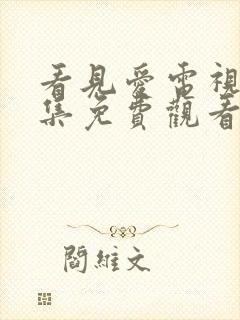 看見愛電視
集免費觀看
閻維文